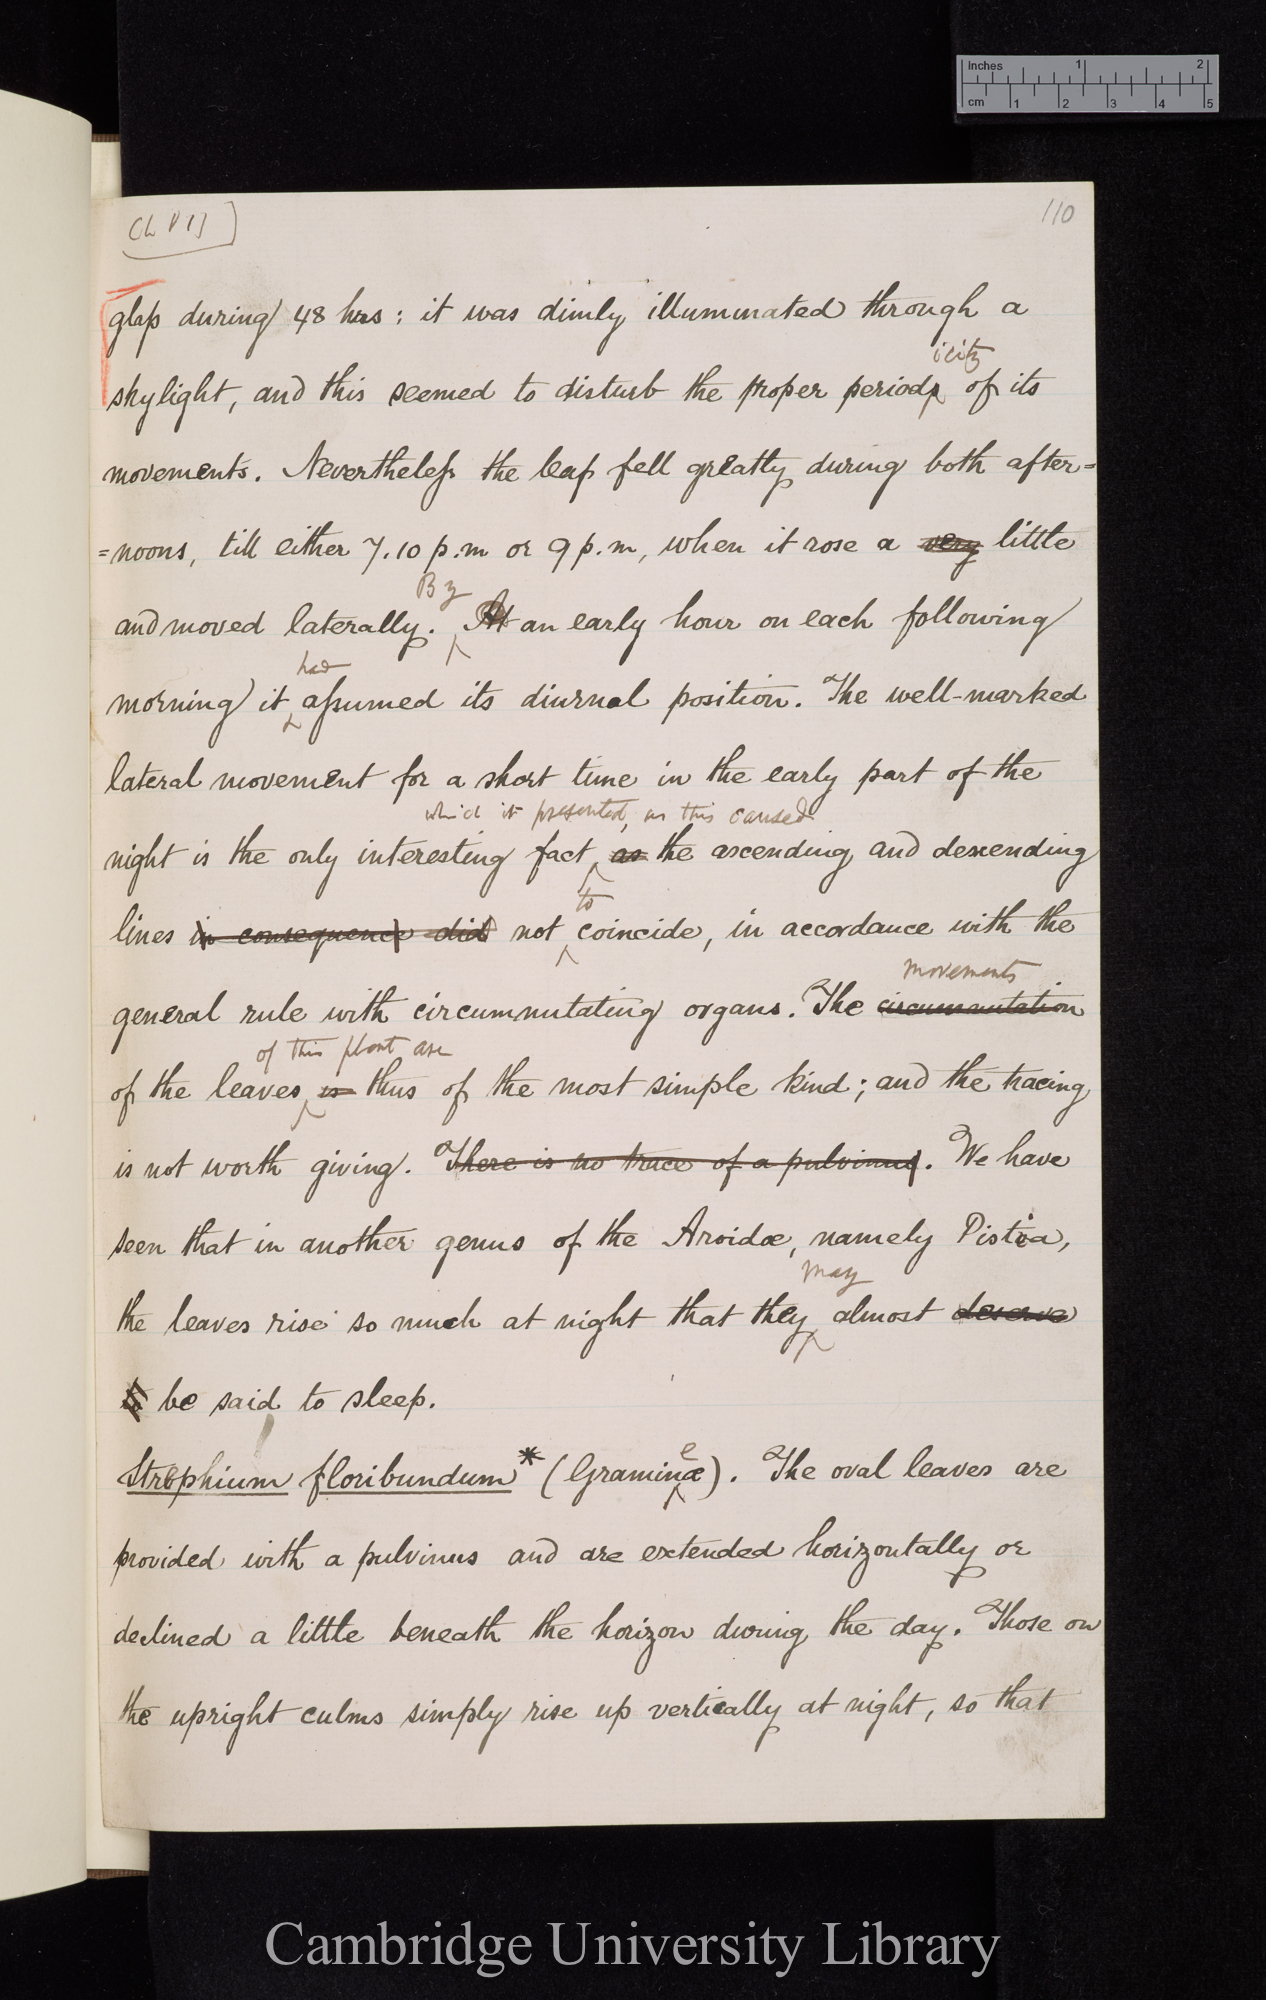 inches 1 2
cm 1 2 3 4 5
Ch VII]
110
glass during 48 hrs: it was dimly illuminated through a
icity
skylight, and this seemed to disturb the proper periods of its
movements. Nevertheless the leaf fell greatly during both after=
=noons, till either 7.10 p.m or 9 p.m, when it rose a very little
By
and moved laterally. At an early hour on each following
had
morning it assumed its diurnal position. The well-marked
lateral movement for a short time in the early part of the
which it presented, as this caused
night is the only interesting fact as the ascending and descending
to
lines in consequence did not coincide, in accordance with the
movements
general rule with circumnutating organs. The circumnutation
of this plant are
of the leaves is thus of the most simple kind; and the tracing
is not worth giving. There is no trace of a pulvinus. We have
seen that in another genus of the Aroidæ, namely Pistia,
may
the leaves rise so much at night that they almost deserve
to be said to sleep.
e
Strephium floribundum* (Graminæ). The oval leaves are
provided with a pulvinus and are extended horizontally or
declined a little beneath the horizon during the day. Those on
the upright culms simply rise up vertically at night, so that
Cambridge University Library